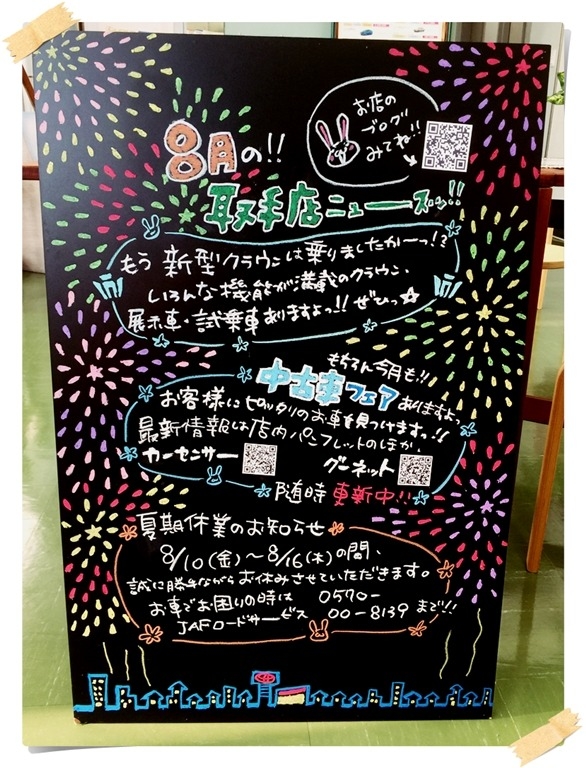 お店の
ブログ
みてね!!
8月の!!
取手店ニューズッ!!
もう 新型クラウンは乗りましたかーっ!?
いろんな機能が満載のクラウン、
展示車・試乗車ありますよっ!! ぜひっ☆
もちろん今月も!!
中古車フェアありますよっ
お客様にピッタリのお車を見つけますっ!!
最新情報は店内パンフレットのほか
カーセンサー グーネット
随時 更新中!!
夏期休業のお知らせ
8/10(金)～8/16(木)の間、
誠に勝手ながらお休みさせていただきます。
お車でお困りの時は 0570-
JAFロードサービス 00-8139 まで!!